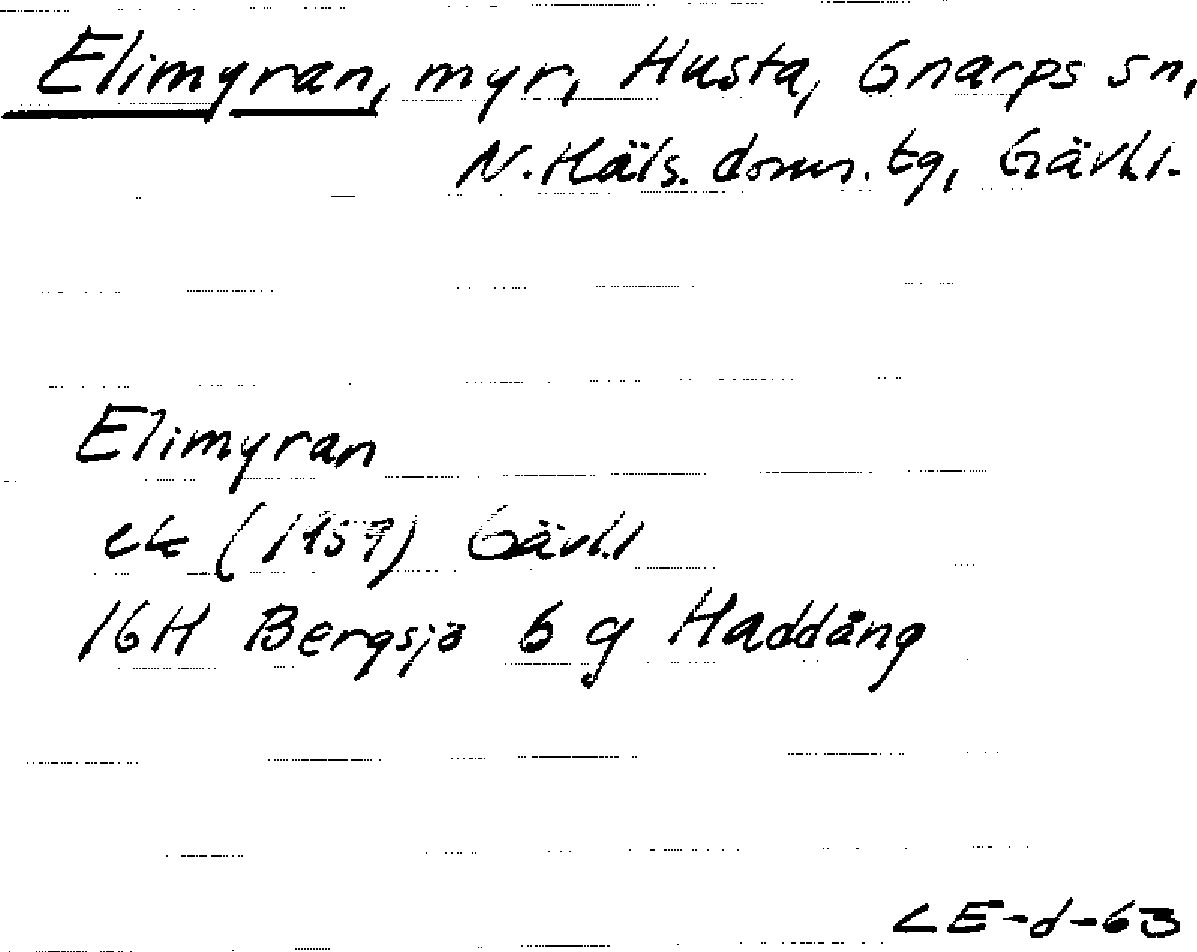 Elimyran, myr, Husta, Gnarps sn,
N. Häls. doms. tg, Gävl.l.
Elimyran
ek (1959) Gävl.l
16H Bergsjö 6 g Haddång
LE-d-63